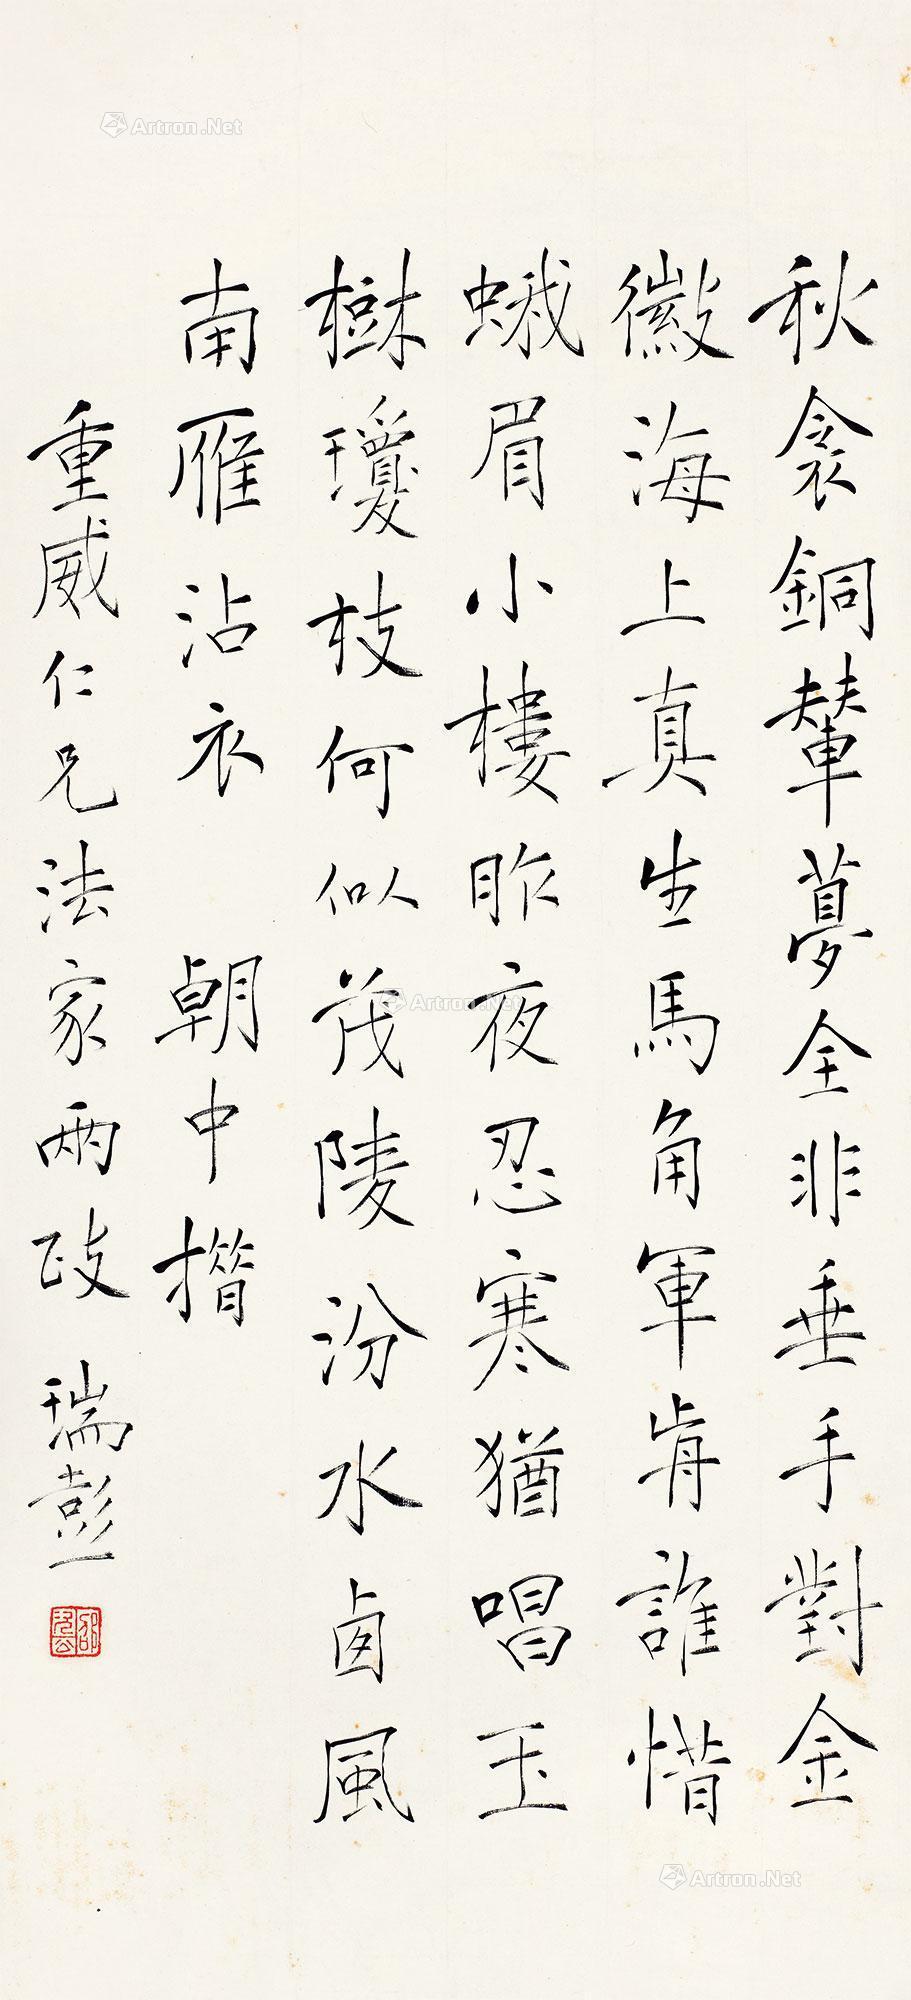 秋衾銅輦夢全非垂手對金
徽海上真生馬角軍前誰惜
蛾眉小樓昨夜忍寒猶唱玉
樹瓊枝何似茂陵汾水卤風
南雁沾衣 朝中措
重威仁兄法家兩政 瑞彭
Artron.Net
Artron.Net
Artron.Net